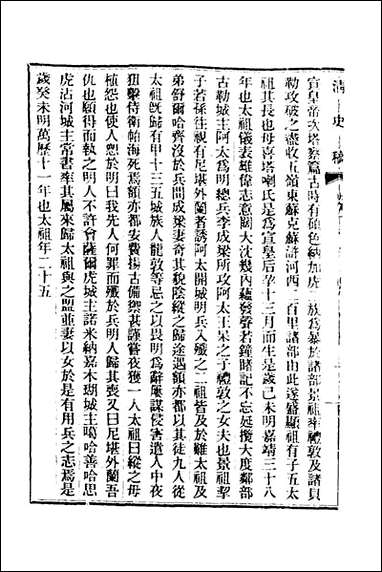 清史稿
宣皇帝次塔察篇古時有碩色納加虎二族為暴於諸部景祖率禮敦及諸貝
勒攻破之盡收五嶺東蘇克蘇滸河西二百里諸部由此遂盛顯祖有子五太
祖其長也母喜塔喇氏是為宣皇后孕十三月而生是歲己未明嘉靖三十八
年也太祖儀表雄偉志意闊大沈幾內蘊發聲若鐘睹記不忘延攬大度鄰部
古勒城主阿太為明總兵李成梁所攻阿太王杲之子禮敦之女夫也景祖挈
子若孫往視有尼堪外蘭者誘阿太開城明兵入殲之二祖皆及於難太祖及
弟舒爾哈齊沒於兵間成梁妻奇其貌陰縱之歸途遇額亦都以其徒九人從
太祖既歸有甲十三五城族人龍敦等忌之以畏明為辭屢謀侵害遣人中夜
狙擊侍衛帕海死焉額亦都安費揚古備禦甚謹嘗夜獲一人太祖曰縱之毋
植怨也使人愬於明曰我先人何罪而殲於兵明人歸其喪又曰尼堪外蘭吾
仇也願得而執之明人不許會薩爾虎城主諾米納嘉木瑚城主噶哈善哈思
虎沾河城主常書率其屬來歸太祖與之盟並妻以女於是有用兵之志焉是
歲癸未明萬歷十一年也太祖年二十五